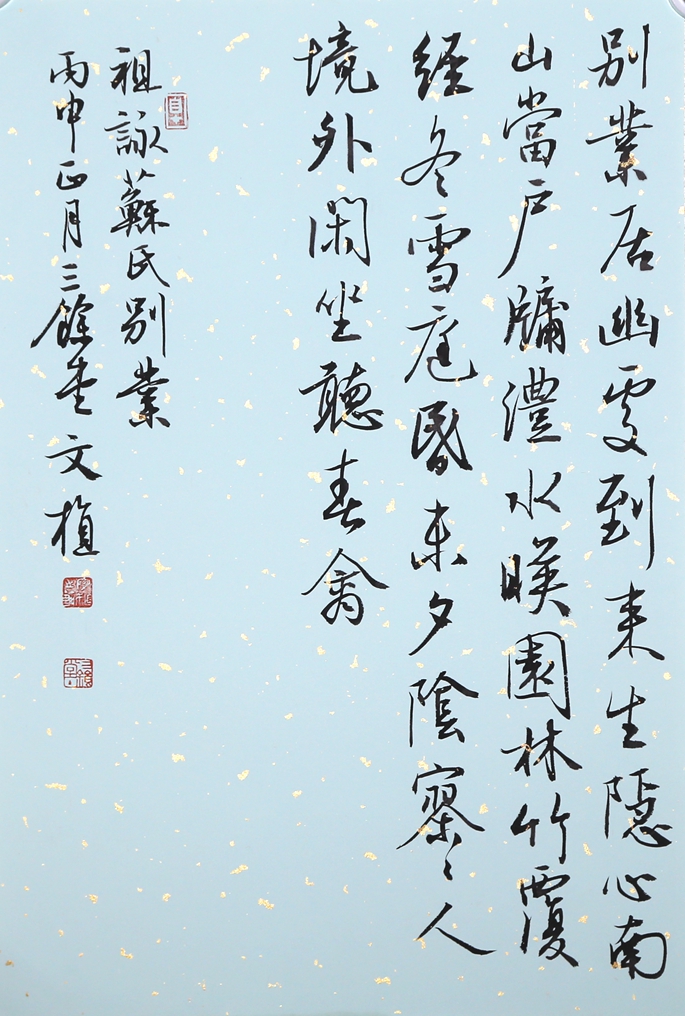 別業居幽處到來生隱心南
山當戶牖澧水暎園林竹覆
經冬雪庭昏未夕陰寥々人
境外閑坐聽春禽
祖詠蘇氏別業
丙申正月三餘堂文植